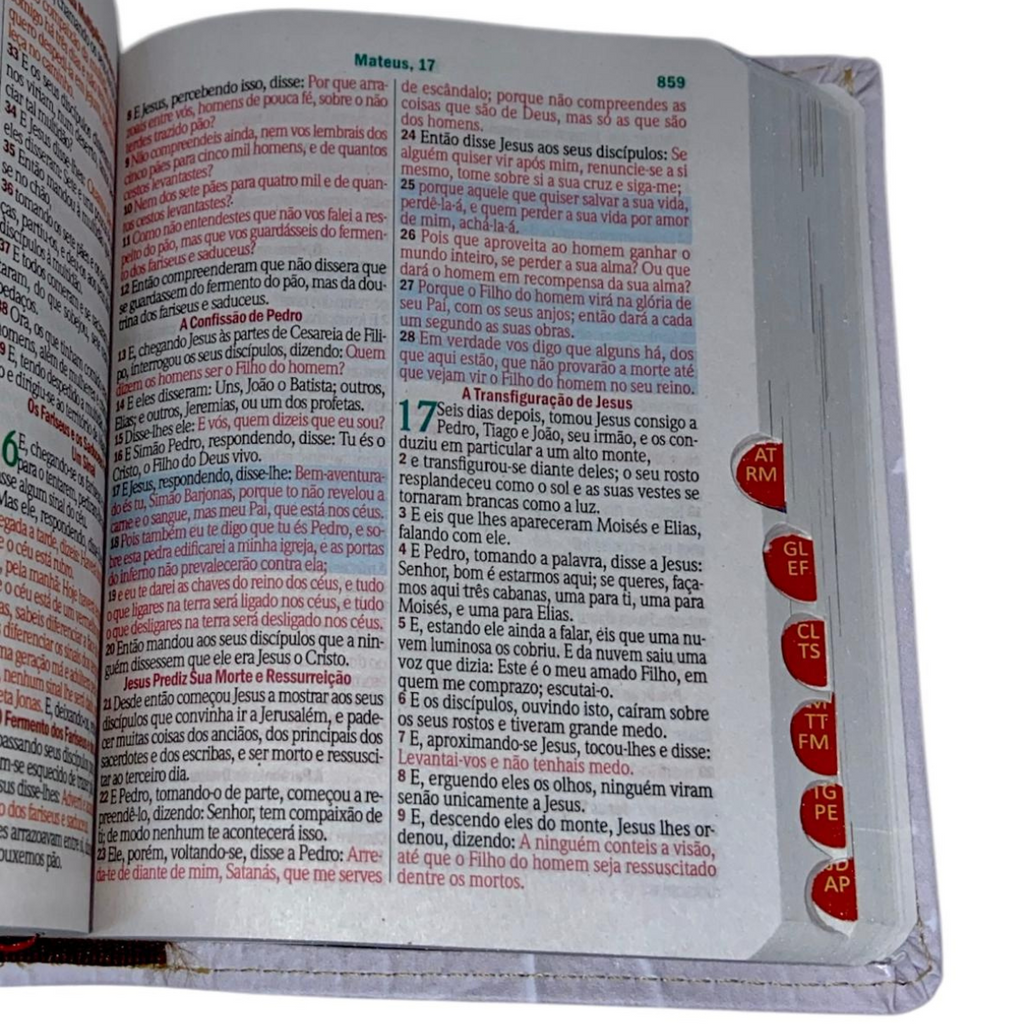 33 E os seus discípulos
nos viriam, num deserto,
ciar tal multidão?
34 E Jesus disse-lhes:
eles disseram: Sete e uns
35 Então mandou à multidão
se no chão,
36 tomando os sete pães e os
ças, partiu-os, e deu-os aos
discípulos à multidão.
37 E todos comeram e se
taram, do que sobejou, sete
pedaços.
38 Ora, os que tinham comido
homens, além de mulheres e
9 E, tendo despedido a multidão
o e dirigiu-se ao território de
Os Fariseus e os Saduceus
Um Sinal
6 E, chegando-se os
para o tentarem, pediram
sse algum sinal do céu.
Mas ele, respondendo, disse
egada a tarde, dizeis:
e o céu está rubro.
, pela manhã: Hoje
e o céu está de um vermelho
as, sabeis diferenciar a
diferenciar os sinais
ma geração má e adúltera
nenhum sinal lhe será
eta Jonas. E, deixando-os,
Fermento dos Fariseus e
passando seus discípulos
m-se esquecido de trazer
sus disse-lhes: Adverti
o dos fariseus e saduceus.
es arrazoavam entre si,
ouxemos pão.
Mateus, 17
859
8 E Jesus, percebendo isso, disse: Por que arra-
zoais entre vós, homens de pouca fé, sobre o não
terdes trazido pão?
9 Não compreendeis ainda, nem vos lembrais dos
cinco pães para cinco mil homens, e de quantos
cestos levantastes?
10 Nem dos sete pães para quatro mil e de quan-
tos cestos levantastes?
11 Como não entendestes que não vos falei a res-
peito do pão, mas que vos guardásseis do fermen-
to dos fariseus e saduceus?
12 Então compreenderam que não dissera que
se guardassem do fermento do pão, mas da dou-
trina dos fariseus e saduceus.
A Confissão de Pedro
13 E, chegando Jesus às partes de Cesareia de Fili-
po, interrogou os seus discípulos, dizendo: Quem
dizem os homens ser o Filho do homem?
14 E eles disseram: Uns, João o Batista; outros,
Elias; e outros, Jeremias, ou um dos profetas.
15 Disse-lhes ele: E vós, quem dizeis que eu sou?
16 E Simão Pedro, respondendo, disse: Tu és o
Cristo, o Filho do Deus vivo.
17 E Jesus, respondendo, disse-lhe: Bem-aventura-
do és tu, Simão Barjonas, porque to não revelou a
carne e o sangue, mas meu Pai, que está nos céus.
18 Pois também eu te digo que tu és Pedro, e so-
bre esta pedra edificarei a minha igreja, e as portas
do inferno não prevalecerão contra ela;
19 e eu te darei as chaves do reino dos céus, e tudo
o que ligares na terra será ligado nos céus, e tudo
o que desligares na terra será desligado nos céus.
20 Então mandou aos seus discípulos que a nin-
guém dissessem que ele era Jesus o Cristo.
Jesus Prediz Sua Morte e Ressurreição
21 Desde então começou Jesus a mostrar aos seus
discípulos que convinha ir a Jerusalém, e pade-
cer muitas coisas dos anciãos, dos principais dos
sacerdotes e dos escribas, e ser morto e ressusci-
tar ao terceiro dia.
22 E Pedro, tomando-o de parte, começou a re-
preendê-lo, dizendo: Senhor, tem compaixão de
ti; de modo nenhum te acontecerá isso.
23 Ele, porém, voltando-se, disse a Pedro: Arre-
da-te de diante de mim, Satanás, que me serves
de escândalo; porque não compreendes as
coisas que são de Deus, mas só as que são
dos homens.
24 Então disse Jesus aos seus discípulos: Se
alguém quiser vir após mim, renuncie-se a si
mesmo, tome sobre si a sua cruz e siga-me;
25 porque aquele que quiser salvar a sua vida,
perdê-la-á, e quem perder a sua vida por amor
de mim, achá-la-á.
26 Pois que aproveita ao homem ganhar o
mundo inteiro, se perder a sua alma? Ou que
dará o homem em recompensa da sua alma?
27 Porque o Filho do homem virá na glória de
seu Pai, com os seus anjos; então dará a cada
um segundo as suas obras.
28 Em verdade vos digo que alguns há, dos
que aqui estão, que não provarão a morte até
que vejam vir o Filho do homem no seu reino.
A Transfiguração de Jesus
17 Seis dias depois, tomou Jesus consigo a
Pedro, Tiago e João, seu irmão, e os con-
duziu em particular a um alto monte,
2 e transfigurou-se diante deles; o seu rosto
resplandeceu como o sol e as suas vestes se
tornaram brancas como a luz.
3 E eis que lhes apareceram Moisés e Elias,
falando com ele.
4 E Pedro, tomando a palavra, disse a Jesus:
Senhor, bom é estarmos aqui; se queres, faça-
mos aqui três cabanas, uma para ti, uma para
Moisés, e uma para Elias.
5 E, estando ele ainda a falar, eis que uma nu-
vem luminosa os cobriu. E da nuvem saiu uma
voz que dizia: Este é o meu amado Filho, em
quem me comprazo; escutai-o.
6 E os discípulos, ouvindo isto, caíram sobre
os seus rostos e tiveram grande medo.
7 E, aproximando-se Jesus, tocou-lhes e disse:
Levantai-vos e não tenhais medo.
8 E, erguendo eles os olhos, ninguém viram
senão unicamente a Jesus.
9 E, descendo eles do monte, Jesus lhes or-
denou, dizendo: A ninguém conteis a visão,
até que o Filho do homem seja ressuscitado
dentre os mortos.
AT
RM
GL
EF
CL
TS
TT
FM
TG
PE
JD
AP